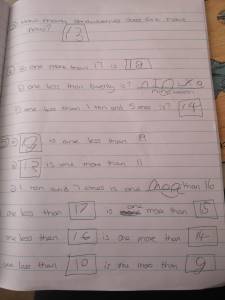 How many strawberries does Eva have
now? 13
one more than 17 is 18
one less than twenty is?
nineteen
one less than 1 ten and 5 ones is? 14
is one less than 19
13 is one more than 11
1 ten and 7 ones is one more than 16
one less than 17 is one more than 15
one less than 16 is one more than 14
one less than 10 is one more than 9